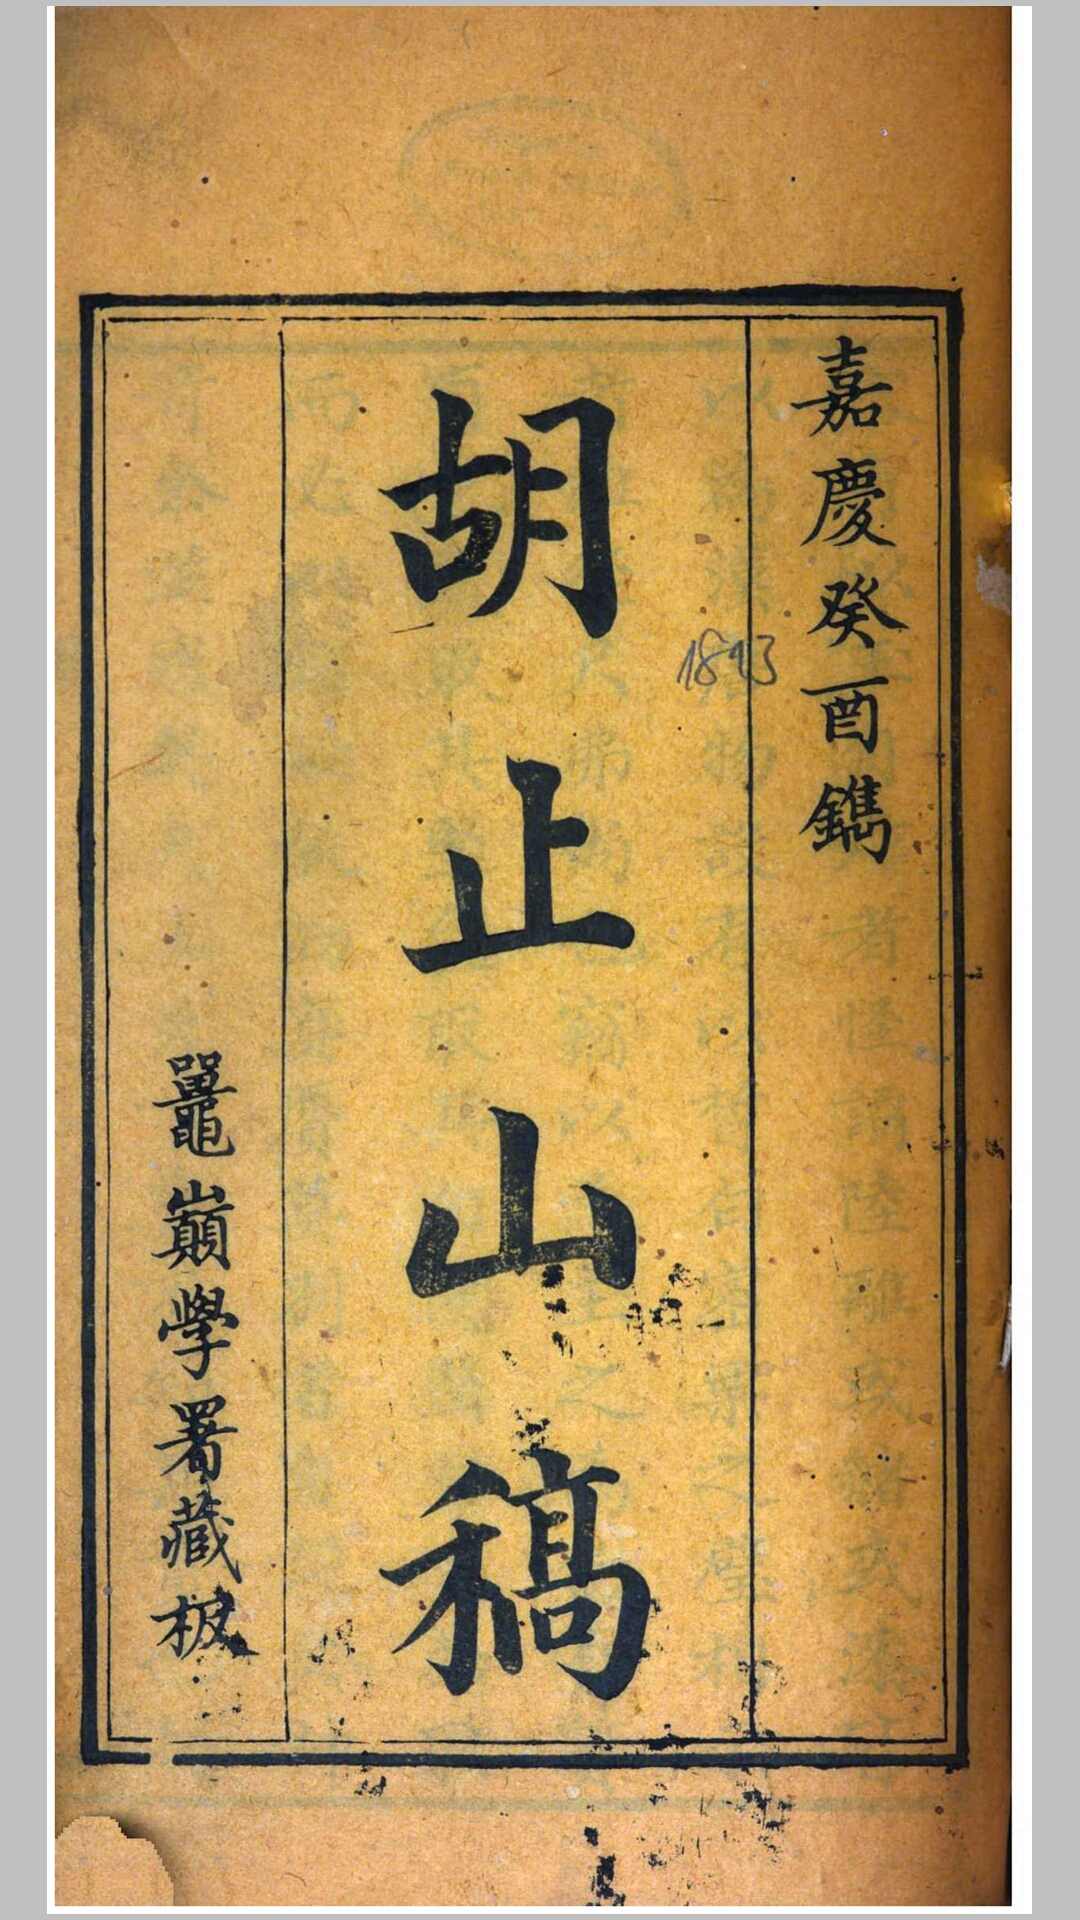 嘉慶癸酉鐫
胡止山稿
鼉巔學署藏板